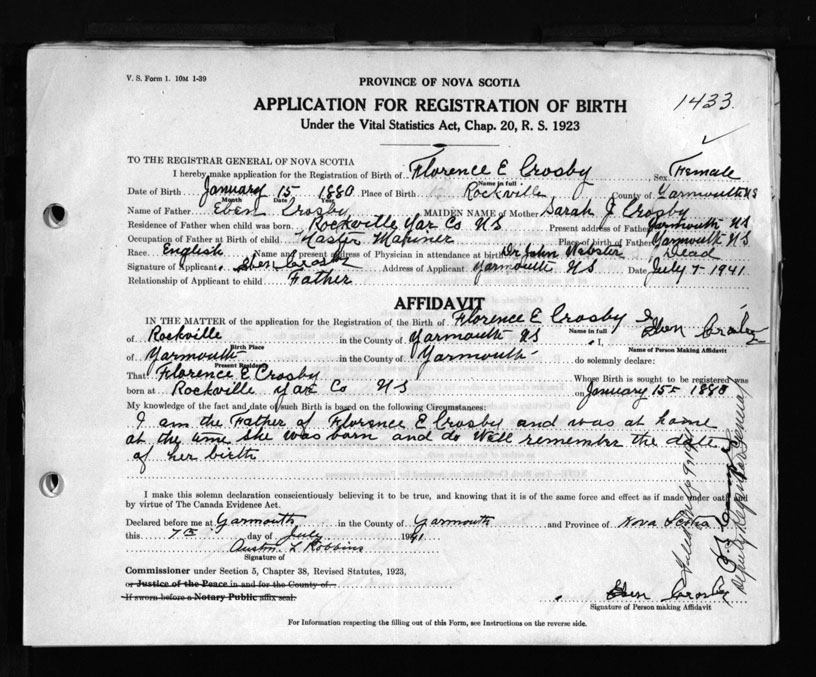 V. S. Form 1. 10M 1-39
PROVINCE OF NOVA SCOTIA
APPLICATION FOR REGISTRATION OF BIRTH
1433.
Under the Vital Statistics Act, Chap. 20, R. S. 1923
TO THE REGISTRAR GENERAL OF NOVA SCOTIA
I hereby make application for the Registration of Birth of Florence E Crosby Sex Female
Name in full
Date of Birth January 15 1880 Place of Birth Rockville County of Yarmouth NS
Month Date Year
Name of Father Eben Crosby MAIDEN NAME of Mother Sarah J Crosby
Residence of Father when child was born Rockville Yar Co NS Present address of Father Yarmouth NS
Occupation of Father at Birth of child Master Mariner Place of birth of Father Yarmouth NS
Race English Name and present address of Physician in attendance at birth Dr John Webster Dead
Signature of Applicant Eben Crosby Address of Applicant Yarmouth NS Date July 7 1941
Relationship of Applicant to child Father
AFFIDAVIT
IN THE MATTER of the application for the Registration of the Birth of Florence E Crosby
Name in full
of Rockville in the County of Yarmouth NS I, Eben Crosby
Birth Place
Name of Person Making Affidavit
of Yarmouth in the County of Yarmouth do solemnly declare:
Present Residence
That Florence E Crosby Whose Birth is sought to be registered was
born at Rockville Yar Co NS on January 15 1880
My knowledge of the fact and date of such Birth is based on the following Circumstances:
I am the Father of Florence E Crosby and was at home
at the time she was born and do well remember the date
of her birth
I make this solemn declaration conscientiously believing it to be true, and knowing that it is of the same force and effect as if made under oath and
by virtue of The Canada Evidence Act.
Declared before me at Yarmouth in the County of Yarmouth and Province of Nova Scotia
this 7th day of July 1941
Austin L Robbins
Signature of
Commissioner under Section 5, Chapter 38, Revised Statutes, 1923,
or Justice of the Peace in and for the County of
If sworn before a Notary Public affix seal.
Eben Crosby
Signature of Person making Affidavit
Deputy Registrar General
For Information respecting the filling out of this Form, see Instructions on the reverse side.